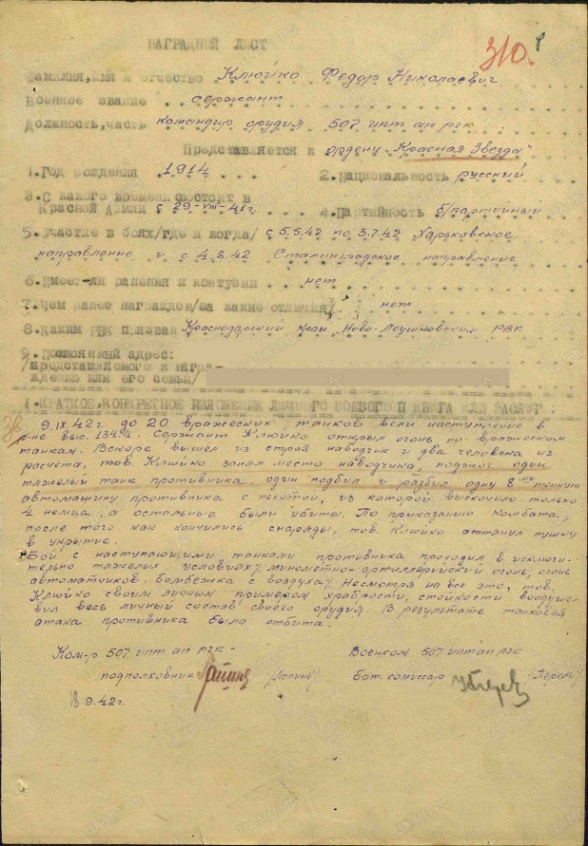 НАГРАДНОЙ ЛИСТ
310.
Фамилия, имя и отчество Клюйко Федор Николаевич
Военное звание . . сержант
Должность, часть командир орудия 507 иптап РГК
Представляется к ордену „Красная Звезда"
1. Год рождения 1914 . . . 2. Национальность русский
3. С какого времени состоит в
Красной Армии с 29-VIII-41г. . . 4. Партийность б/партийный
5. Участие в боях/где и когда/ с 5.5.42 по 3.7.42 Харьковское
направление и с 4.8.42 Сталинградское направление
6. Имеет-ли ранения и контузии . . нет
7. Чем ранее награжден/за какие отличия/ нет
8. Каким РВК призван Краснодарский край Ново-Леушковским РВК
9. Постоянный адрес:
/представляемого к награ-
ждению или его семьи/
1. КРАТКОЕ, КОНКРЕТНОЕ ИЗЛОЖЕНИЕ ЛИЧНОГО БОЕВОГО ПОДВИГА ИЛИ ЗАСЛУГ:
9.IX.42г. до 20 вражеских танков вели наступление в
р-не выс. 134,4. Сержант Клюйко открыл огонь по вражеским
танкам. Вскоре вышел из строя наводчик и два человека из
расчета, тов. Клюйко занял место наводчика, поджог один
тяжелый танк противника, один подбил и разбил одну 8ми тонную
автомашину противника с пехотой, из которой выскочило только
4 немца, а остальные были убиты. По приказанию комбата,
после того как кончились снаряды, тов. Клюйко оттянул пушку
в укрытие.
Бой с наступающими танками противника проходил в исключи-
тельно тяжелых условиях, минометно-артиллерийский огонь, огонь
автоматчиков, бомбежка с воздуха, Несмотря на все это, тов.
Клюйко своим личным примером храбрости, стойкости воодуше-
вил весь личный состав своего орудия. В результате танковая
атака противника была отбита.
Ком-р 507 иптап РГК - Военком 507 иптап РГК
подполковник /Лапин/ бат. комиссар
9.42г.